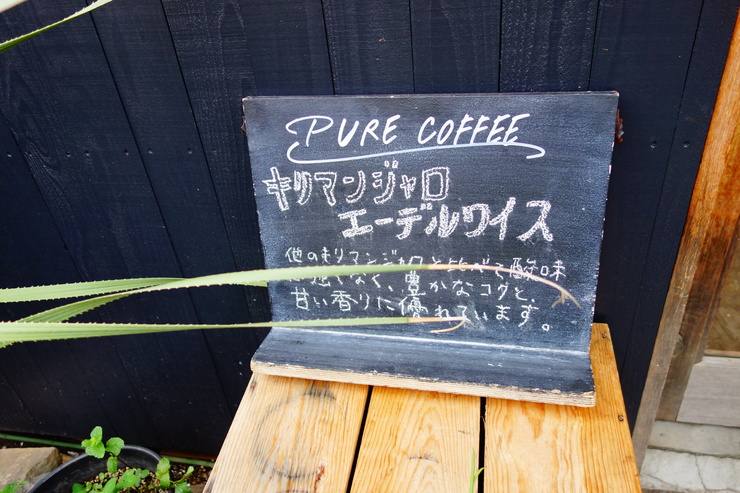 PURE COFFEE
キリマンジャロ
エーデルワイス
他のキリマンジャロと比べて酸味
強くなく、豊かなコクと、
甘い香りに優れています。